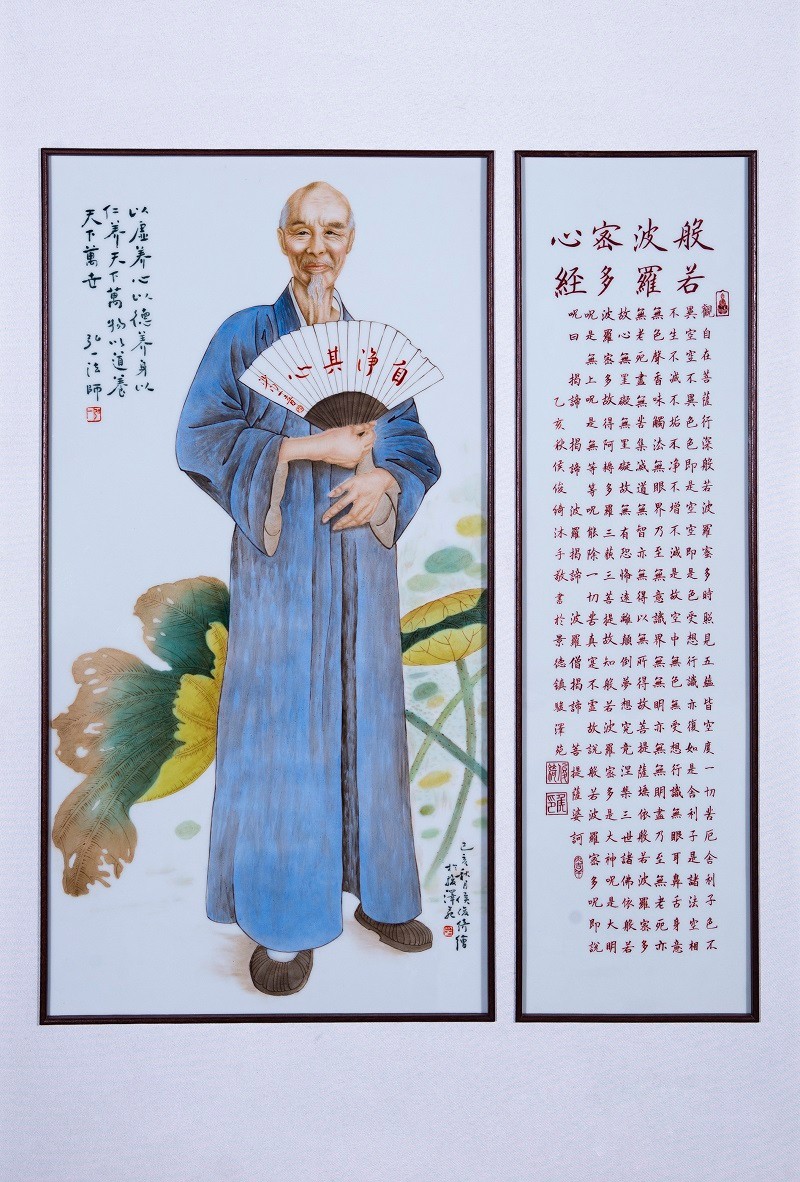 以虛養心以德養身以
仁養天下萬物以道養
天下萬世
弘一法師
自淨其心
己亥秋月侯俊倚繪
於駿澤苑
般若
波羅
密多
心經
觀自在菩薩行深般若波羅密多時照見五蘊皆空度一切苦厄舍利子色不
異空空不異色色即是空空即是色受想行識亦復如是舍利子是諸法空相
不生不滅不垢不淨不增不減是故空中無色無受想行識無眼耳鼻舌身意
無色聲香味觸法無眼界乃至無意識界無無明亦無無明盡乃至無老死亦
無老死盡無苦集滅道無智亦無得以無所得故菩提薩埵依般若波羅密多
故心無罣礙無罣礙故無有恐怖遠離顛倒夢想究竟涅槃三世諸佛依般若
波羅密多故得阿耨多羅三藐三菩提故知般若波羅密多是大神呪是大明
呪是無上呪是無等等呪能除一切苦真實不虛故說般若波羅密多呪即說
呪曰 揭諦 揭諦 波羅揭諦 波羅僧揭諦 菩提薩婆訶
乙亥秋侯俊倚沐手敬書於景德鎮駿澤苑